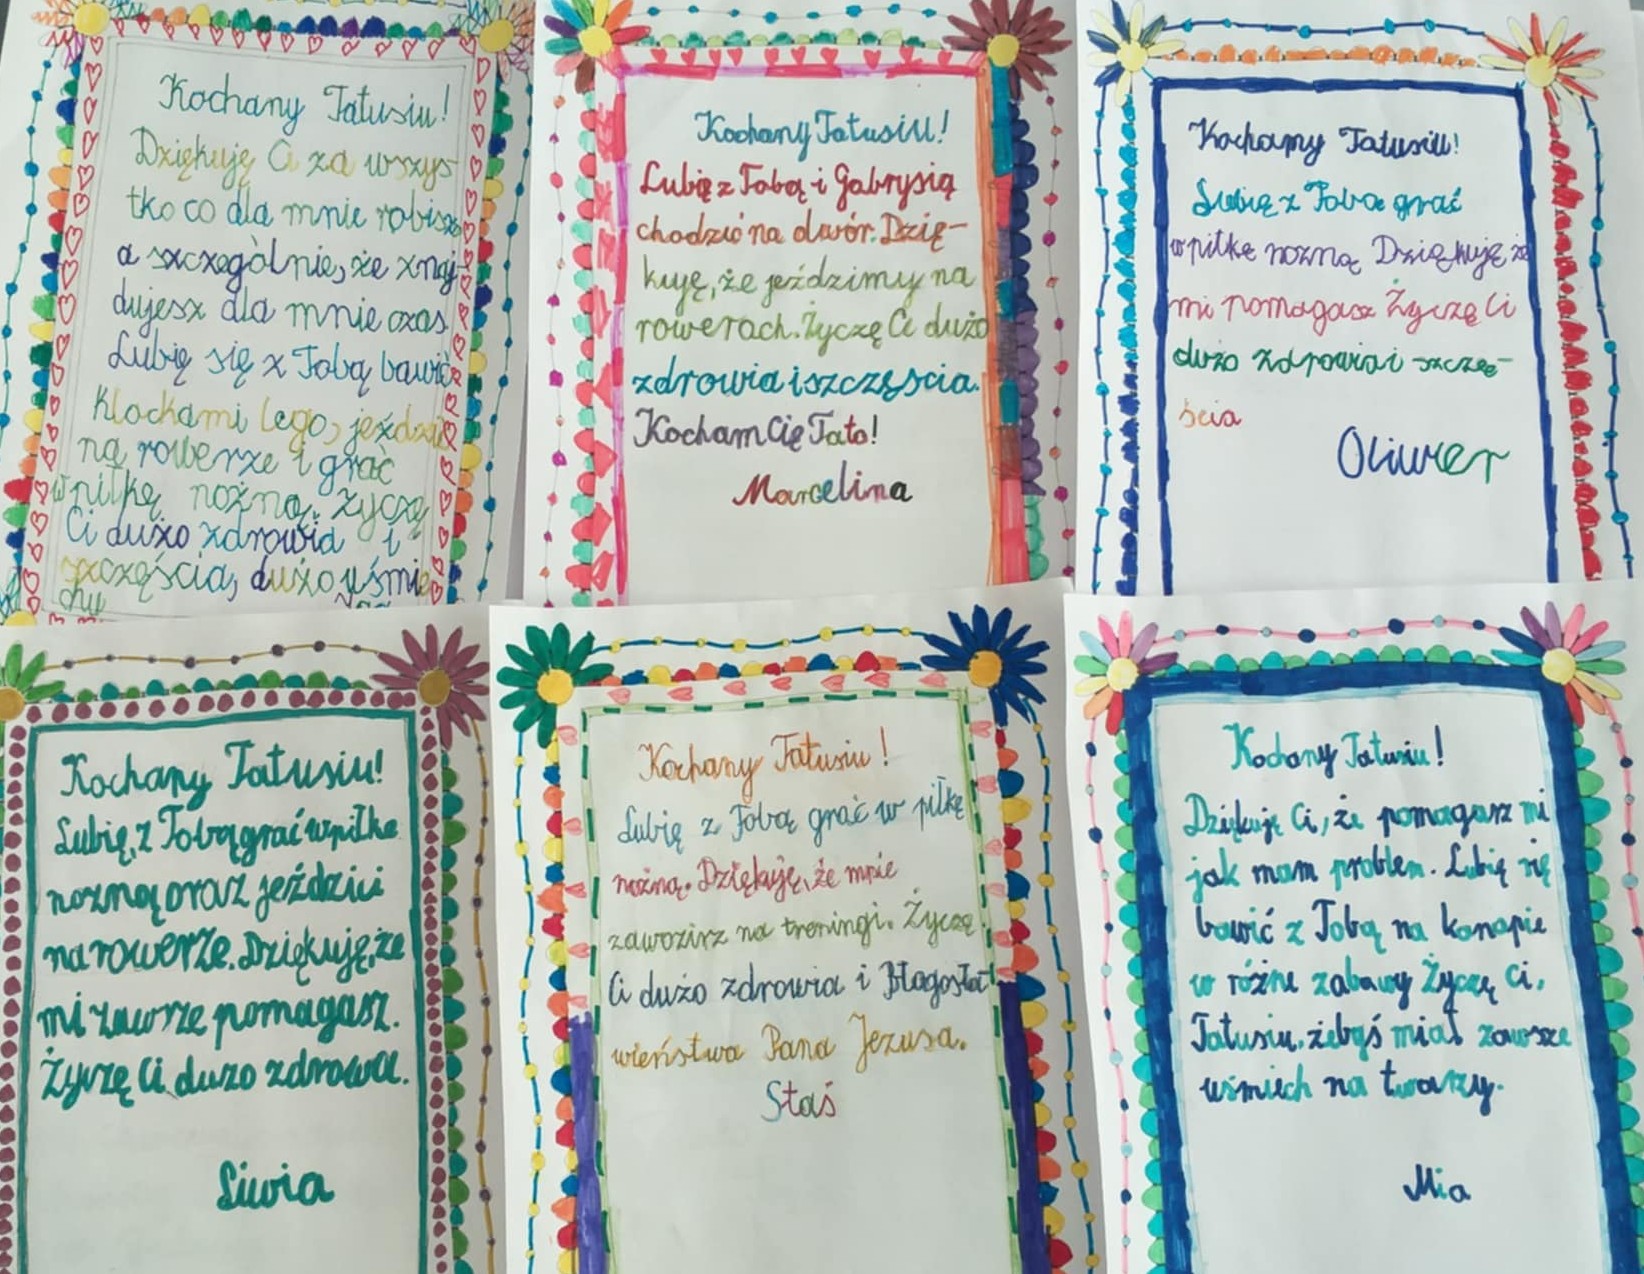 Kochany Tatusiu!
Dziękuję Ci za wszys-
tko co dla mnie robisz
a szczególnie, że znaj-
dujesz dla mnie czas
Lubię się z Tobą bawić
klockami lego, jeździć
na rowerze i grać
w piłkę nożną. Życzę
Ci dużo zdrowia i
szczęścia, dużo uśmie
chu
Kochany Tatusiu!
Lubię z Tobą i Gabrysią
chodzić na dwór. Dzię-
kuję, że jeździmy na
rowerach. Życzę Ci dużo
zdrowia i szczęścia.
Kocham Cię Tato!
Marcelina
Kochany Tatusiu!
Lubię z Tobą grać
w piłkę nożną Dziękuję że
mi pomagasz Życzę Ci
dużo zdrowia i szczę-
ścia
Oliwier
Kochany Tatusiu!
Lubię, z Tobą grać w piłkę
nożną oraz jeździci
na rowerze. Dziękuję, że
mi zawsze pomagasz.
Życzę Ci dużo zdrowa.
Liwia
Kochany Tatusiu!
Lubię z Tobą grać w piłkę
nożną. Dziękuję, że mnie
zawozisz na treningi. Życzę
Ci dużo zdrowia i Błogosła
wieństwa Pana Jezusa.
Staś
Kochany Tatusiu!
Dziękuję Ci, że pomagasz mi
jak mam problem. Lubię się
bawić z Tobą na kanapie
w różne zabawy Życzę Ci,
Tatusiu, żebyś miał zawsze
uśmiech na twarzy.
Mia